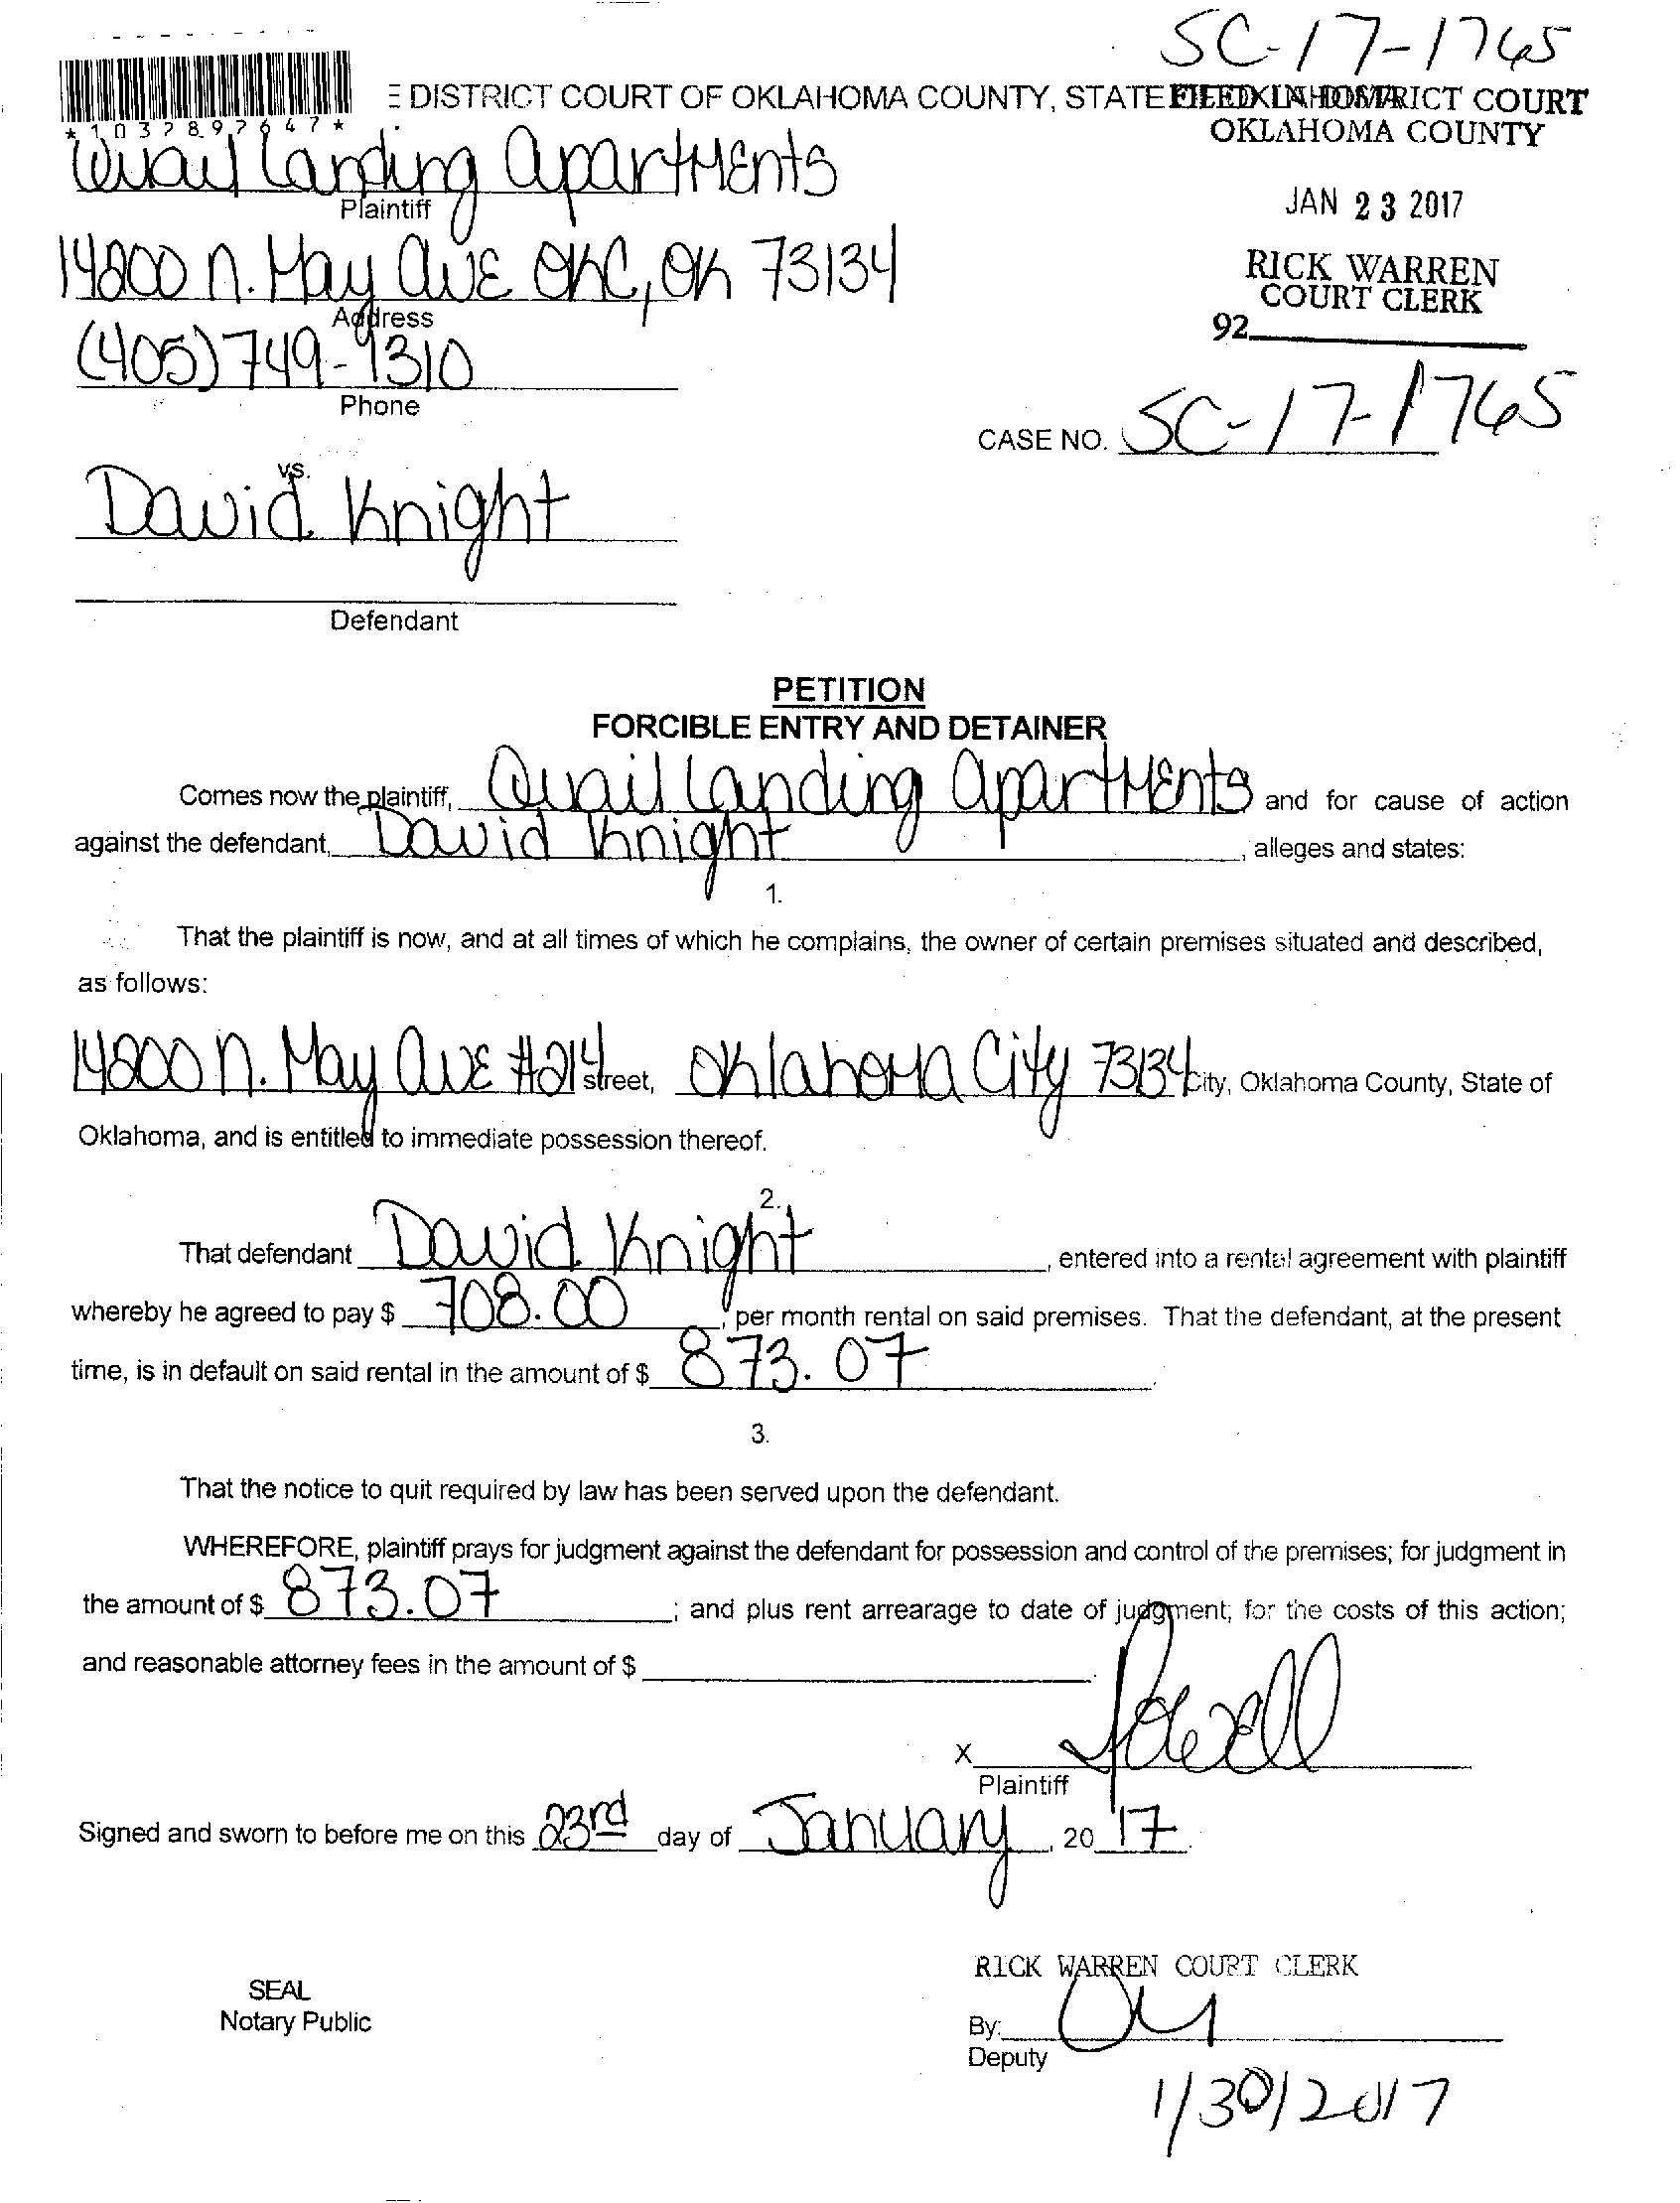 SC-17-1765
E DISTRICT COURT OF OKLAHOMA COUNTY, STATE
FILED IN DISTRICT COURT
OKLAHOMA COUNTY
*1037897647*
Quail Landing Apartments
Plaintiff
JAN 23 2017
14200 N. May Ave OKC, OK 73134
Address
RICK WARREN
COURT CLERK
92
(405)749-9310
Phone
CASE NO. SC-17-1765
vs.
David Knight
Defendant
PETITION
FORCIBLE ENTRY AND DETAINER
Comes now the plaintiff, Quail Landing Apartments and for cause of action
against the defendant, David Knight, alleges and states:
1.
That the plaintiff is now, and at all times of which he complains, the owner of certain premises situated and described,
as follows:
14200 N. May Ave #214 street, Oklahoma City 73134 City, Oklahoma County, State of
Oklahoma, and is entitled to immediate possession thereof.
2.
That defendant David Knight, entered into a rental agreement with plaintiff
whereby he agreed to pay $ 708.00, per month rental on said premises. That the defendant, at the present
time, is in default on said rental in the amount of $ 873.07.
3.
That the notice to quit required by law has been served upon the defendant.
WHEREFORE, plaintiff prays for judgment against the defendant for possession and control of the premises; for judgment in
the amount of $ 873.07; and plus rent arrearage to date of judgment; for the costs of this action;
and reasonable attorney fees in the amount of $
X
Plaintiff
Signed and sworn to before me on this 23rd day of January, 20 17.
RICK WARREN COURT CLERK
SEAL
Notary Public
By:
Deputy
1/30/2017